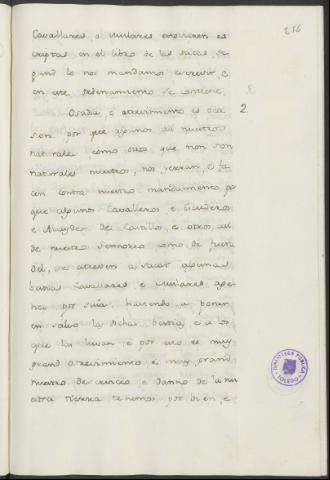 216
Cavallares, o mulares estovieren es
criptas en el libro de las sacas, se
gund lo nos mandamos escrevir, e
en este ordenamiento se contiene.
2
Osadia, e atrevimiento es oca
sion por que algunos asi nuestros
naturales como otros que non son
naturales nuestros, nos yerran, e fa
cen contra nuestro mandamiento, por
que algunos Cavalleros e Escuderos
e Alcaydes de Castillos, e otros, asi
de nuestro Sennorio como de fuera
del, se atreven a sacar algunas
bestias Cavallares e mulares apre
mio por suia, haciendo a poner
en salvo las dichas bestias, e a los
que las lievan, e por que es muy
grand atrevimiento e muy grand
nuestro deservicio e danno de la nu
estra tierra tenemos por bien, e
BIBLIOTECA PUBLICA
TOLEDO